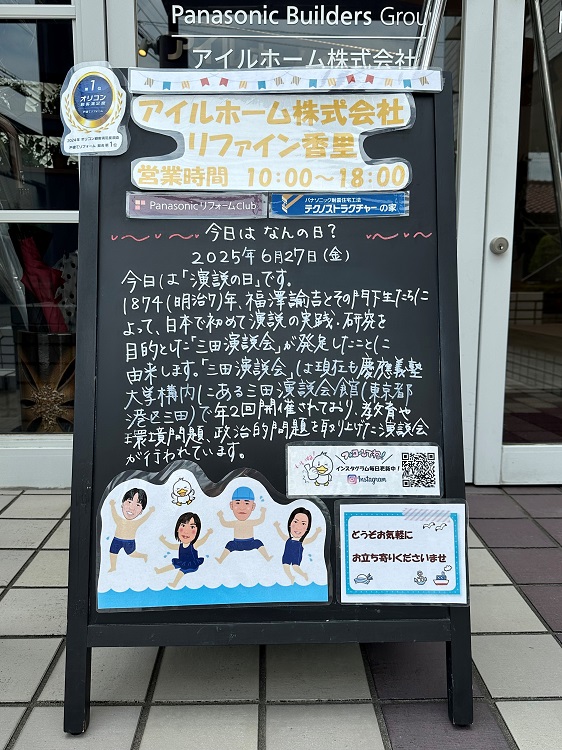 Panasonic Builders Group
アイルホーム株式会社
第1位
オリコン
顧客満足度
2024年 オリコン顧客満足度調査
戸建てリフォーム 総合 第1位
アイルホーム株式会社
リファイン香里
営業時間 10:00~18:00
Panasonic リフォームclub
パナソニック耐震住宅工法
テクノストラクチャーの家
今日は なんの日?
2025年6月27日(金)
今日は「演説の日」です。
1874(明治7)年、福澤諭吉とその門下生たちに
よって、日本で初めて演説の実践・研究を
目的とした「三田演説会」が発足したことに
由来します。「三田演説会」は現在も慶應義塾
大学構内にある三田演説会館(東京都
港区三田)で年2回開催されており、教育や
環境問題、政治的問題を取り上げた演説会
が行われています。
フォローしてね!
インスタグラム毎日更新中!
Instagram
どうぞお気軽に
お立ち寄りくださいませ